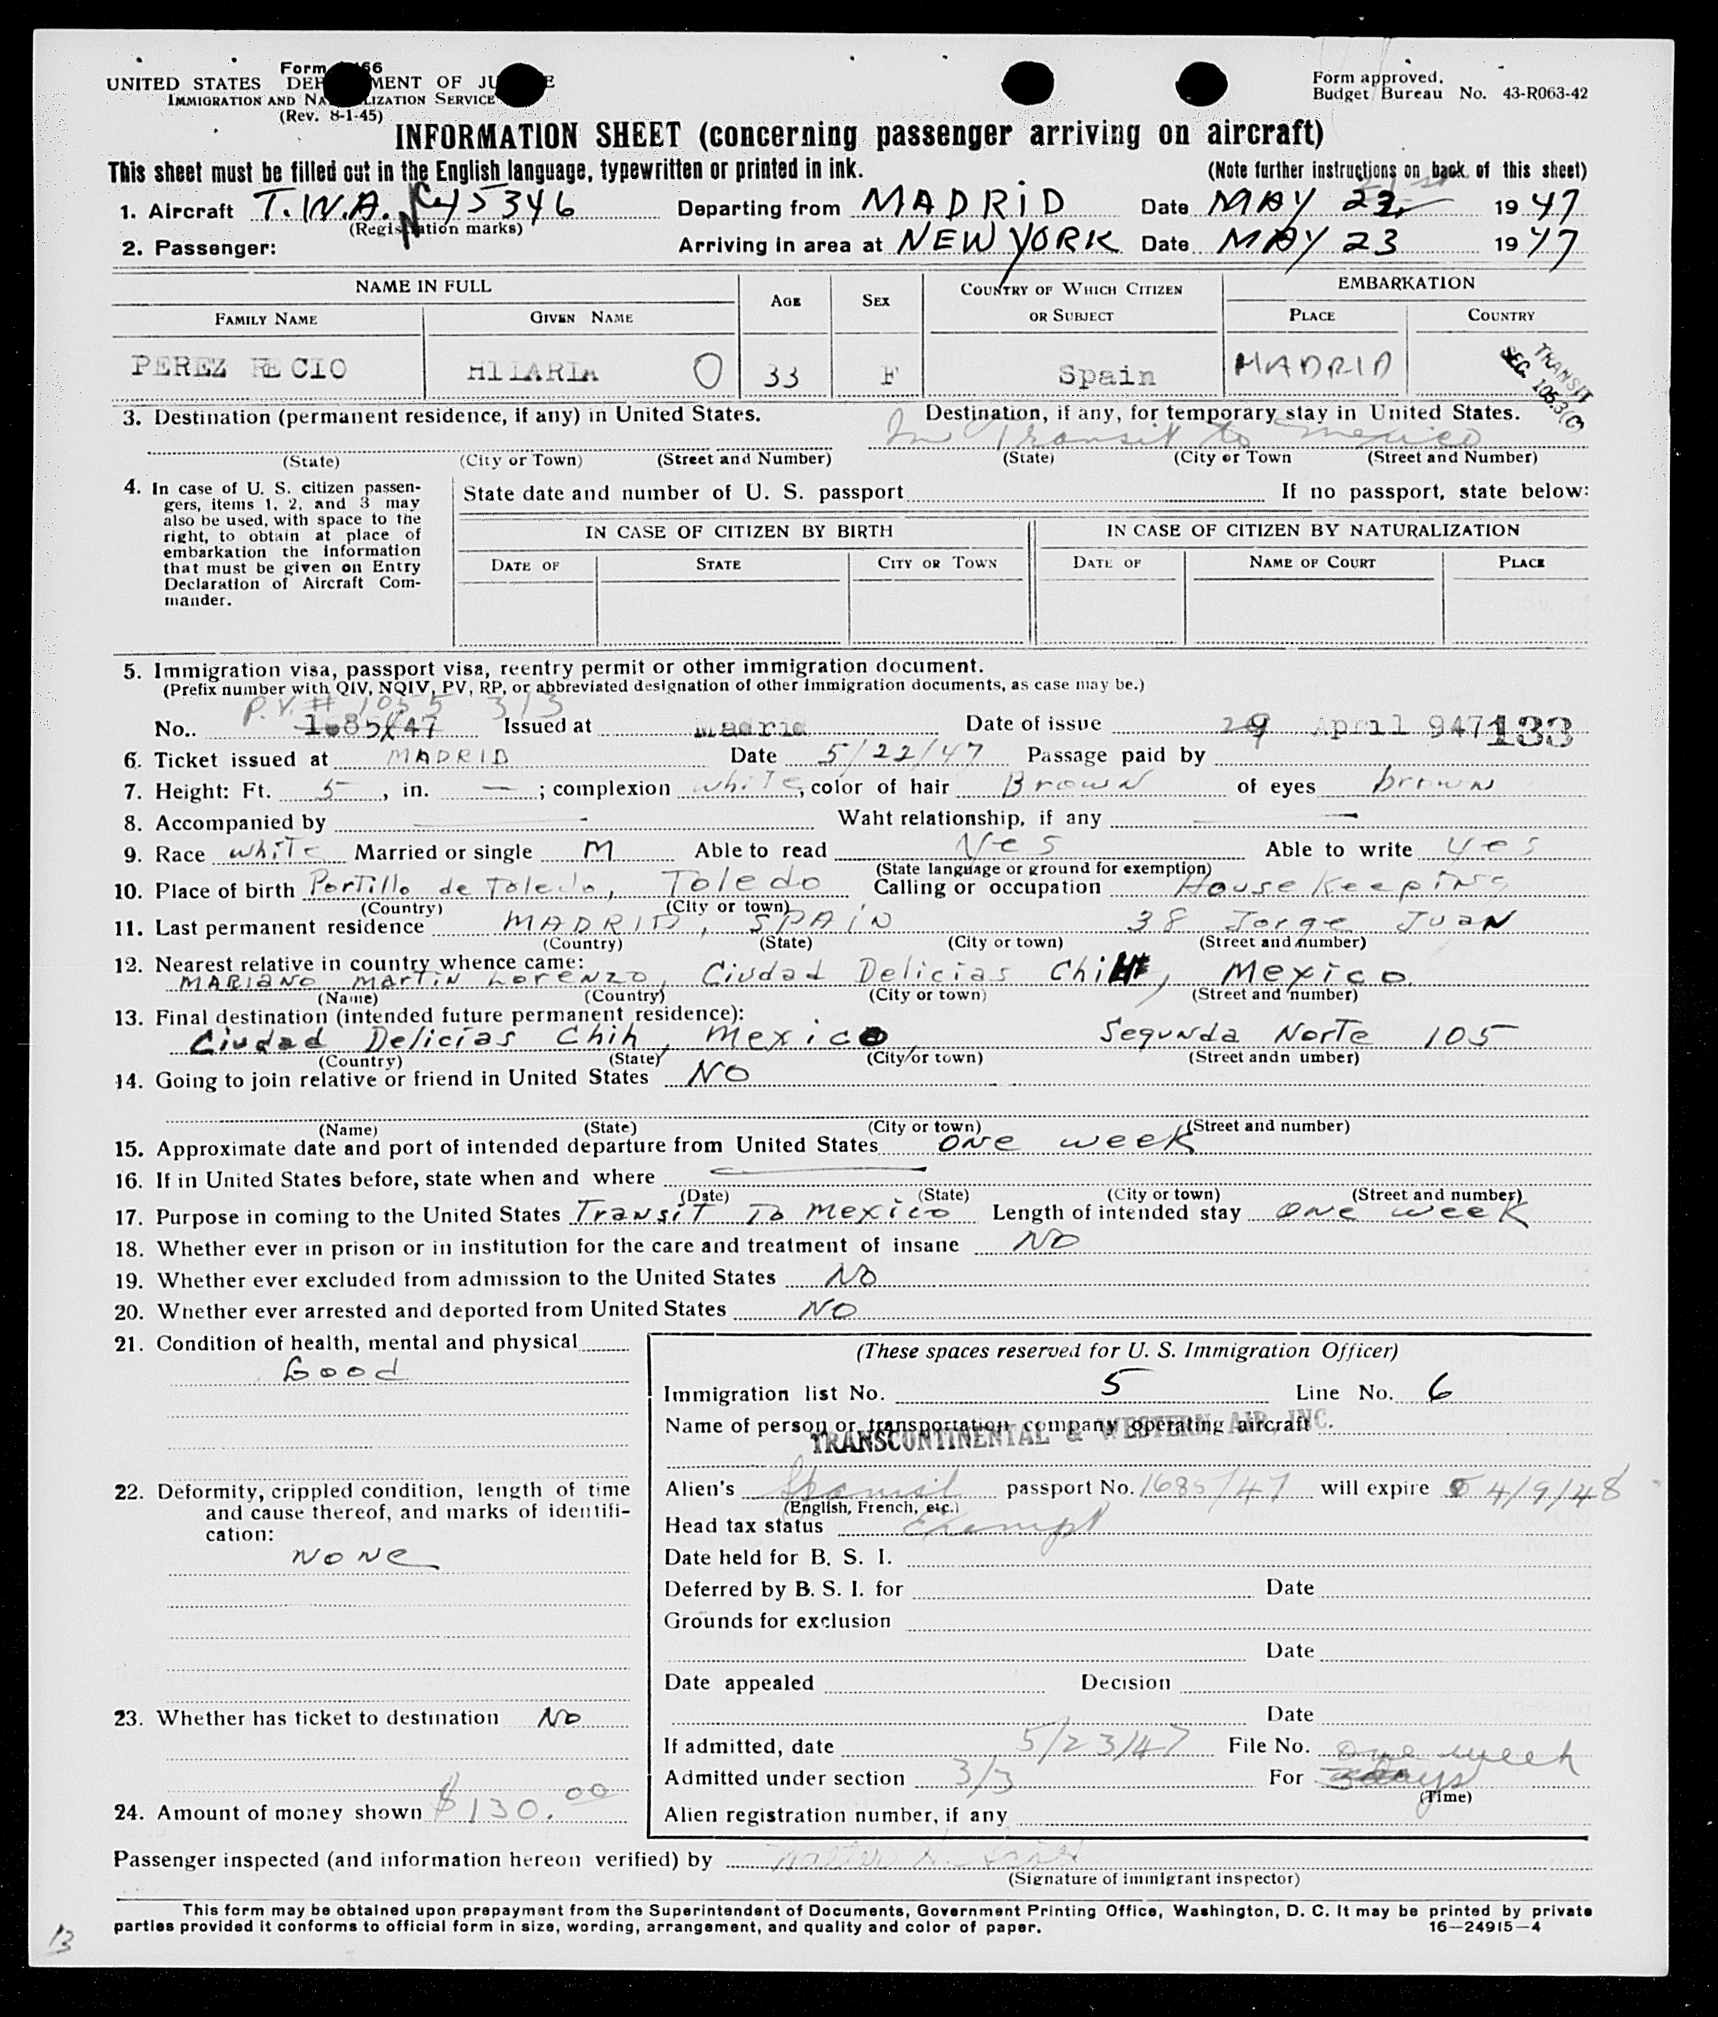 Form 66
UNITED STATES DEP MENT OF JU E
IMMIGRATION AND NA LIZATION SERVICE
(Rev. 8-1-45)
Form approved.
Budget Bureau No. 43-R063-42
INFORMATION SHEET (concerning passenger arriving on aircraft)
This sheet must be filled out in the English language, typewritten or printed in ink.
(Note further instructions on back of this sheet)
1. Aircraft T.W.A. NC 45346 Departing from MADRID Date MAY 22 21st 1947
(Registration marks)
2. Passenger: Arriving in area at NEW YORK Date MAY 23 1947
NAME IN FULL AGE SEX COUNTRY OF WHICH CITIZEN OR SUBJECT EMBARKATION
FAMILY NAME GIVEN NAME PLACE COUNTRY
PEREZ RECIO HILARIA O 33 F Spain MADRID
TRANSIT
SEC. 105.3(C)
3. Destination (permanent residence, if any) in United States. Destination, if any, for temporary stay in United States.
In Transit to Mexico
(State) (City or Town) (Street and Number) (State) (City or Town (Street and Number)
4. In case of U. S. citizen passengers, items 1, 2, and 3 may also be used, with space to the right, to obtain at place of embarkation the information that must be given on Entry Declaration of Aircraft Commander.
State date and number of U. S. passport If no passport, state below:
IN CASE OF CITIZEN BY BIRTH IN CASE OF CITIZEN BY NATURALIZATION
DATE OF STATE CITY OR TOWN DATE OF NAME OF COURT PLACE
5. Immigration visa, passport visa, reentry permit or other immigration document.
(Prefix number with QIV, NQIV, PV, RP, or abbreviated designation of other immigration documents, as case may be.)
P.V. # 1055 3/3
No.. 1685/47 Issued at Madrid Date of issue 29 April 947 133
6. Ticket issued at MADRID Date 5/22/47 Passage paid by
7. Height: Ft. 5, in. —; complexion white, color of hair Brown of eyes brown
8. Accompanied by — Waht relationship, if any —
9. Race white Married or single M Able to read Yes Able to write yes
(State language or ground for exemption)
10. Place of birth Portillo de Toledo, Toledo Calling or occupation House Keeping
(Country) (City or town)
11. Last permanent residence MADRID, SPAIN 38 Jorge Juan
(Country) (State) (City or town) (Street and number)
12. Nearest relative in country whence came:
MARIANO MARTIN LORENZO, Ciudad Delicias Chih, Mexico.
(Name) (Country) (City or town) (Street and number)
13. Final destination (intended future permanent residence):
Ciudad Delicias Chih, Mexico, Segunda Norte 105
(Country) (State) (City or town) (Street andn umber)
14. Going to join relative or friend in United States NO
(Name) (State) (City or town) (Street and number)
15. Approximate date and port of intended departure from United States one week
16. If in United States before, state when and where —
(Date) (State) (City or town) (Street and number)
17. Purpose in coming to the United States Transit To Mexico Length of intended stay one week
18. Whether ever in prison or in institution for the care and treatment of insane NO
19. Whether ever excluded from admission to the United States NO
20. Whether ever arrested and deported from United States NO
21. Condition of health, mental and physical
Good
22. Deformity, crippled condition, length of time and cause thereof, and marks of identification:
NONE
23. Whether has ticket to destination NO
24. Amount of money shown $130.00
(These spaces reserved for U. S. Immigration Officer)
Immigration list No. 5 Line No. 6
Name of person or transportation company operating aircraft
TRANSCONTINENTAL & WESTERN AIR, INC.
Alien's Spanish passport No. 1685/47 will expire 4/9/48
(English, French, etc.)
Head tax status Exempt
Date held for B. S. I.
Deferred by B. S. I. for Date
Grounds for exclusion
Date
Date appealed Decision
Date
If admitted, date 5/23/47 File No. one week
Admitted under section 3/3 For 3 days
(Time)
Alien registration number, if any
Passenger inspected (and information hereon verified) by
(Signature of immigrant inspector)
This form may be obtained upon prepayment from the Superintendent of Documents, Government Printing Office, Washington, D. C. It may be printed by private
parties provided it conforms to official form in size, wording, arrangement, and quality and color of paper. 16—24915—4
13